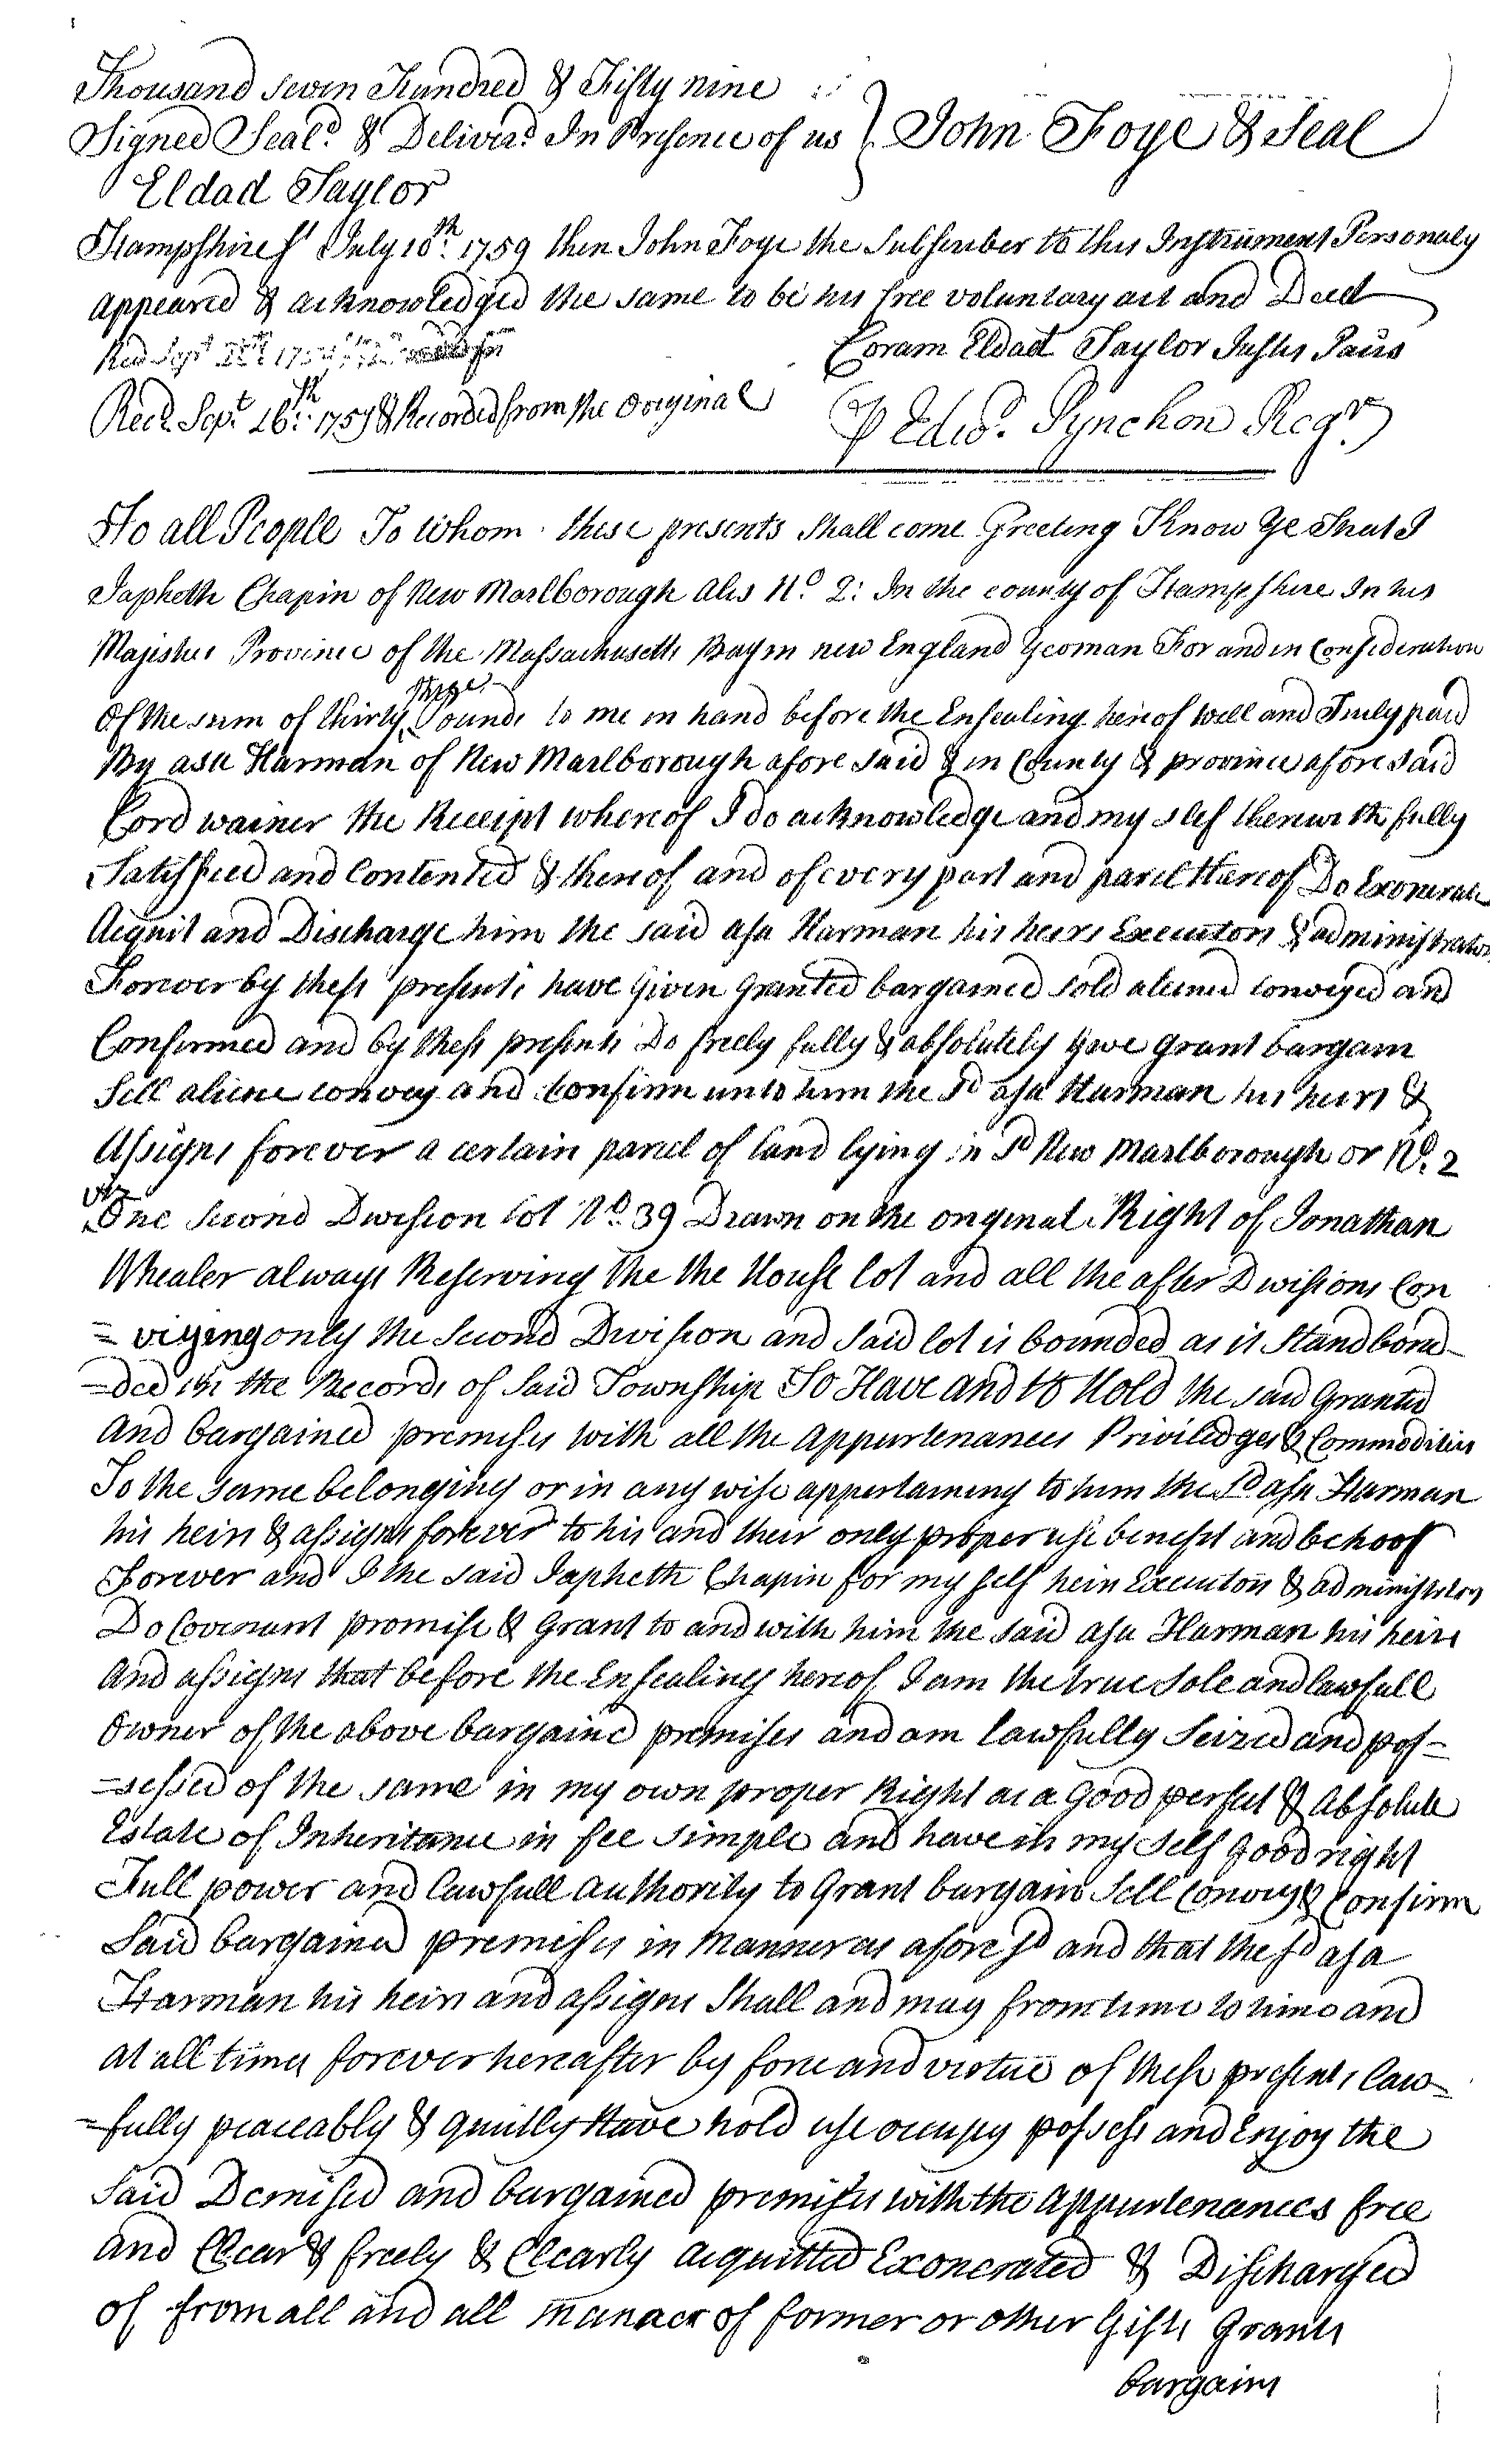 Thousand seven Hundred & Fifty nine
Signed Seal.d & Deliver.d In Presence of us } John Foye & Seal
Eldad Taylor
Hampshire ss July 10th. 1759 then John Foye the Subscriber to this Instrument Personaly
appeared & acknowledged the same to be his free voluntary act and Deed
Coram Eldad Taylor Justis Pacis
Recd. Sept. 26th. 1759 & Recorded from the Original
P Edwd. Pynchon Regr.
To all People To Whom these presents Shall come Greeting Know Ye That I
Japheth Chapin of New Marlborough Alis No. 2: In the county of Hampshire In his
Majisties Province of the Massachusetts Bay in new England Yeoman For and in Consideration
Of the sum of thirty three Pounds to me in hand before the Ensealing hereof Well and Truly paid
By asa Harman of New Marlborough afore said & in County & province afore said
Cord wainer the Receipt whereof I do acknowledge and my slef therewith fully
Satisfied and Contented & thereof and of every part and parcel thereof Do Exonerate
Acquit and Discharge him the said asa Harman his heirs Executors & administrators
Forever by these presents have Given Granted bargained sold aliened conveyed and
Confirmed and by these presents Do freely fully & absolutely Give grant bargain
Sell aliene convey and confirm unto him the sd asa Harman his heirs &
Assigns forever a certain parcel of land lying in sd New Marlborough or No. 2
viz
One Second Division lot No. 39 Drawn on the original Right of Jonathan
Whealer always Reserving the the House lot and all the after Divisions Con
=veying only the Second Division and said lot is bounded as it Stand boun-
=ded in the Records of said Township To Have and to Hold the said Granted
And bargained premises with all the Appurtenances Priviledges & Commodities
To the same belonging or in any wise appertaining to him the sd asa Harman
his heirs & assigns forever to his and their only proper use benefit and behoof
Forever and I the said Japheth Chapin for my self heirs Executors & administrators
Do Covenant promise & Grant to and with him the said asa Harman his heirs
And assigns that before the Ensealing hereof I am the true Sole and lawfull
Owner of the above bargaind premises and am lawfully Seized and pos=
=sessed of the same in my own proper Right as a Good perfect & Absolute
Estate of Inheritance in fee simple and have in my self good right
Full power and lawfull authority to Grant bargain Sell Convey & Confirm
Said bargained premises in Manner as afore sd and that the sd asa
Harman his heirs and assigns Shall and may from time to time and
at all times forever hereafter by force and virtue of these presents law
=fully peaceably & quietly Have hold use occupy possess and Enjoy the
Said Demised and bargained premises with the Appurtenances free
and Clear & freely & Clearly acquitted Exonerated & Discharged
of from all and all manner of former or other Gifts Grants
bargains